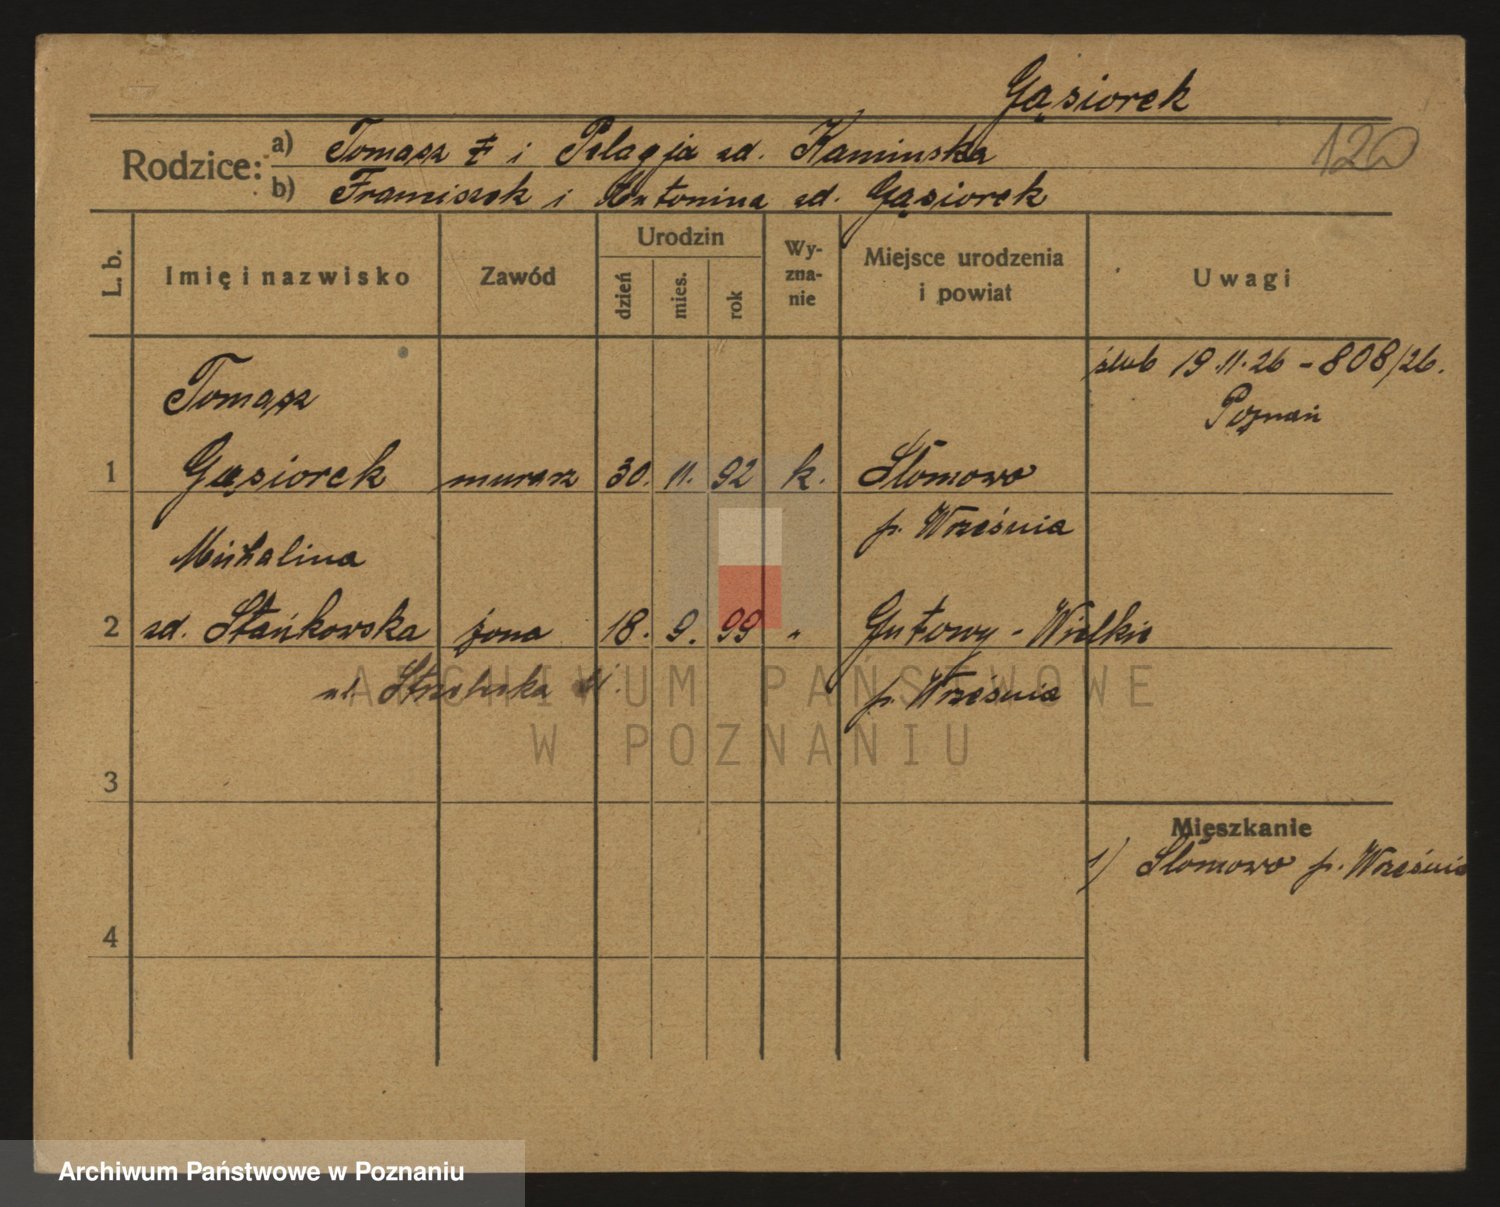 Gąsiorek
120
Rodzice: a) Tomasz ‡ i Pelagja zd. Kaminska
b) Franciszek i Antonina zd. Gąsiorek
L. b. Imię i nazwisko Zawód Urodzin dzień mies. rok Wy-zna-nie Miejsce urodzenia i powiat Uwagi
ślub 19.11.26 - 808/26.
Poznań
Tomasz
1 Gąsiorek murarz 30. 11. 92 k. Słomowo
p. Września
Michalina
2 zd. Stańkowska żona 18. 9. 99 " Gutowy - Wielkie
ul. Strzelecka
p. Września
3
Mieszkanie
1) Słomowo p. Września
4
ARCHIWUM PAŃSTWOWE
W POZNANIU
Archiwum Państwowe w Poznaniu